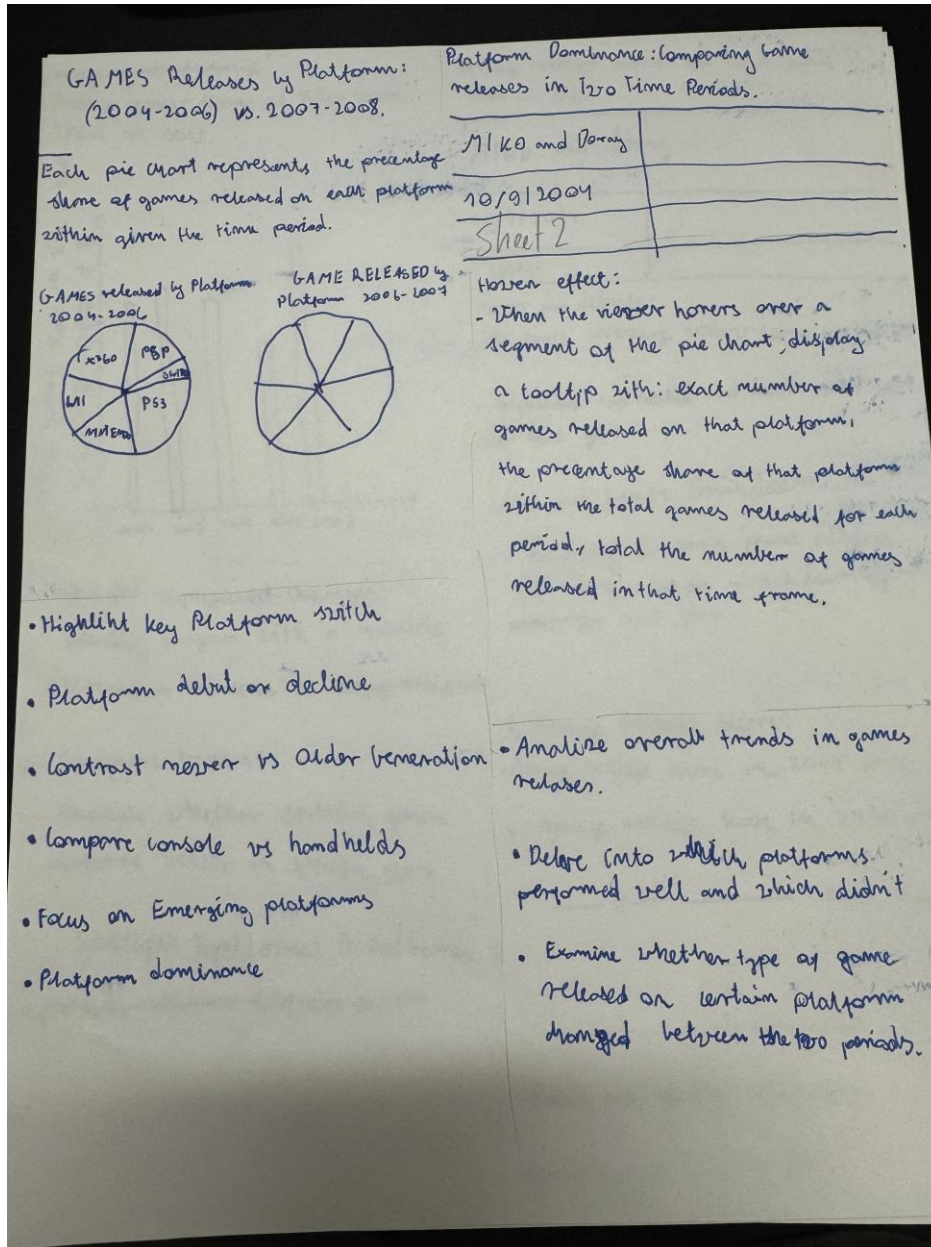 GAMES Releases by Platform:
(2004-2006) vs. 2007-2008.
Each pie chart represents the precentage
share of games released on each platform
within given the time period.
GAMES released by Platform
2004-2006
X360
PSP
WII
PS3
GAME RELEASED by
Platform 2006-2007
• Highliht key Platform switch
• Platform debut or decline
• Contrast newer vs Older Generation
• Compare console vs handhelds
• Focus on Emerging platforms
• Platform dominance
Platform Dominance: Comparing Game
releases in Two Time Periods.
MIKO and Doray
10/9/2004
Sheet 2
Hover effect:
- When the viewer hovers over a
segment of the pie chart, display
a tooltip with: exact number of
games released on that platform,
the precentage share of that platform
within the total games released for each
period, total the number of games
released in that time frame.
• Analize overall trends in games
relases.
• Delve into which platforms
performed well and which didn't
• Examine whether type of game
released on certain platform
changed between the two periods.